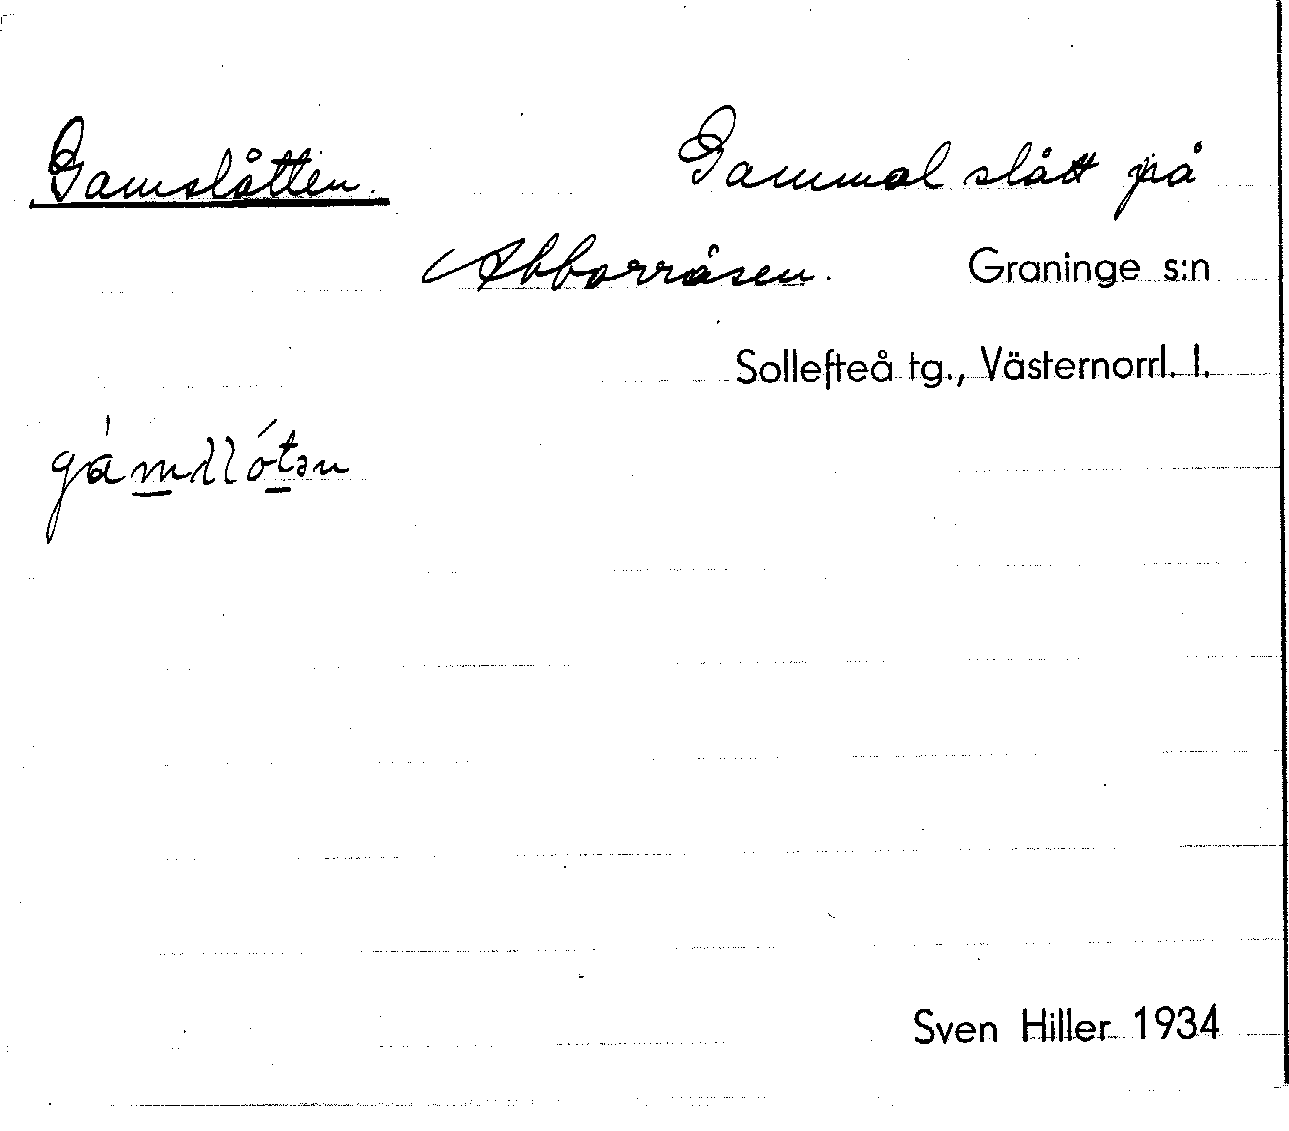 Gamslåtten. Gammal slått på
Abborråsen. Graninge s:n
Sollefteå tg., Västernorrl. l.
Sven Hiller 1934